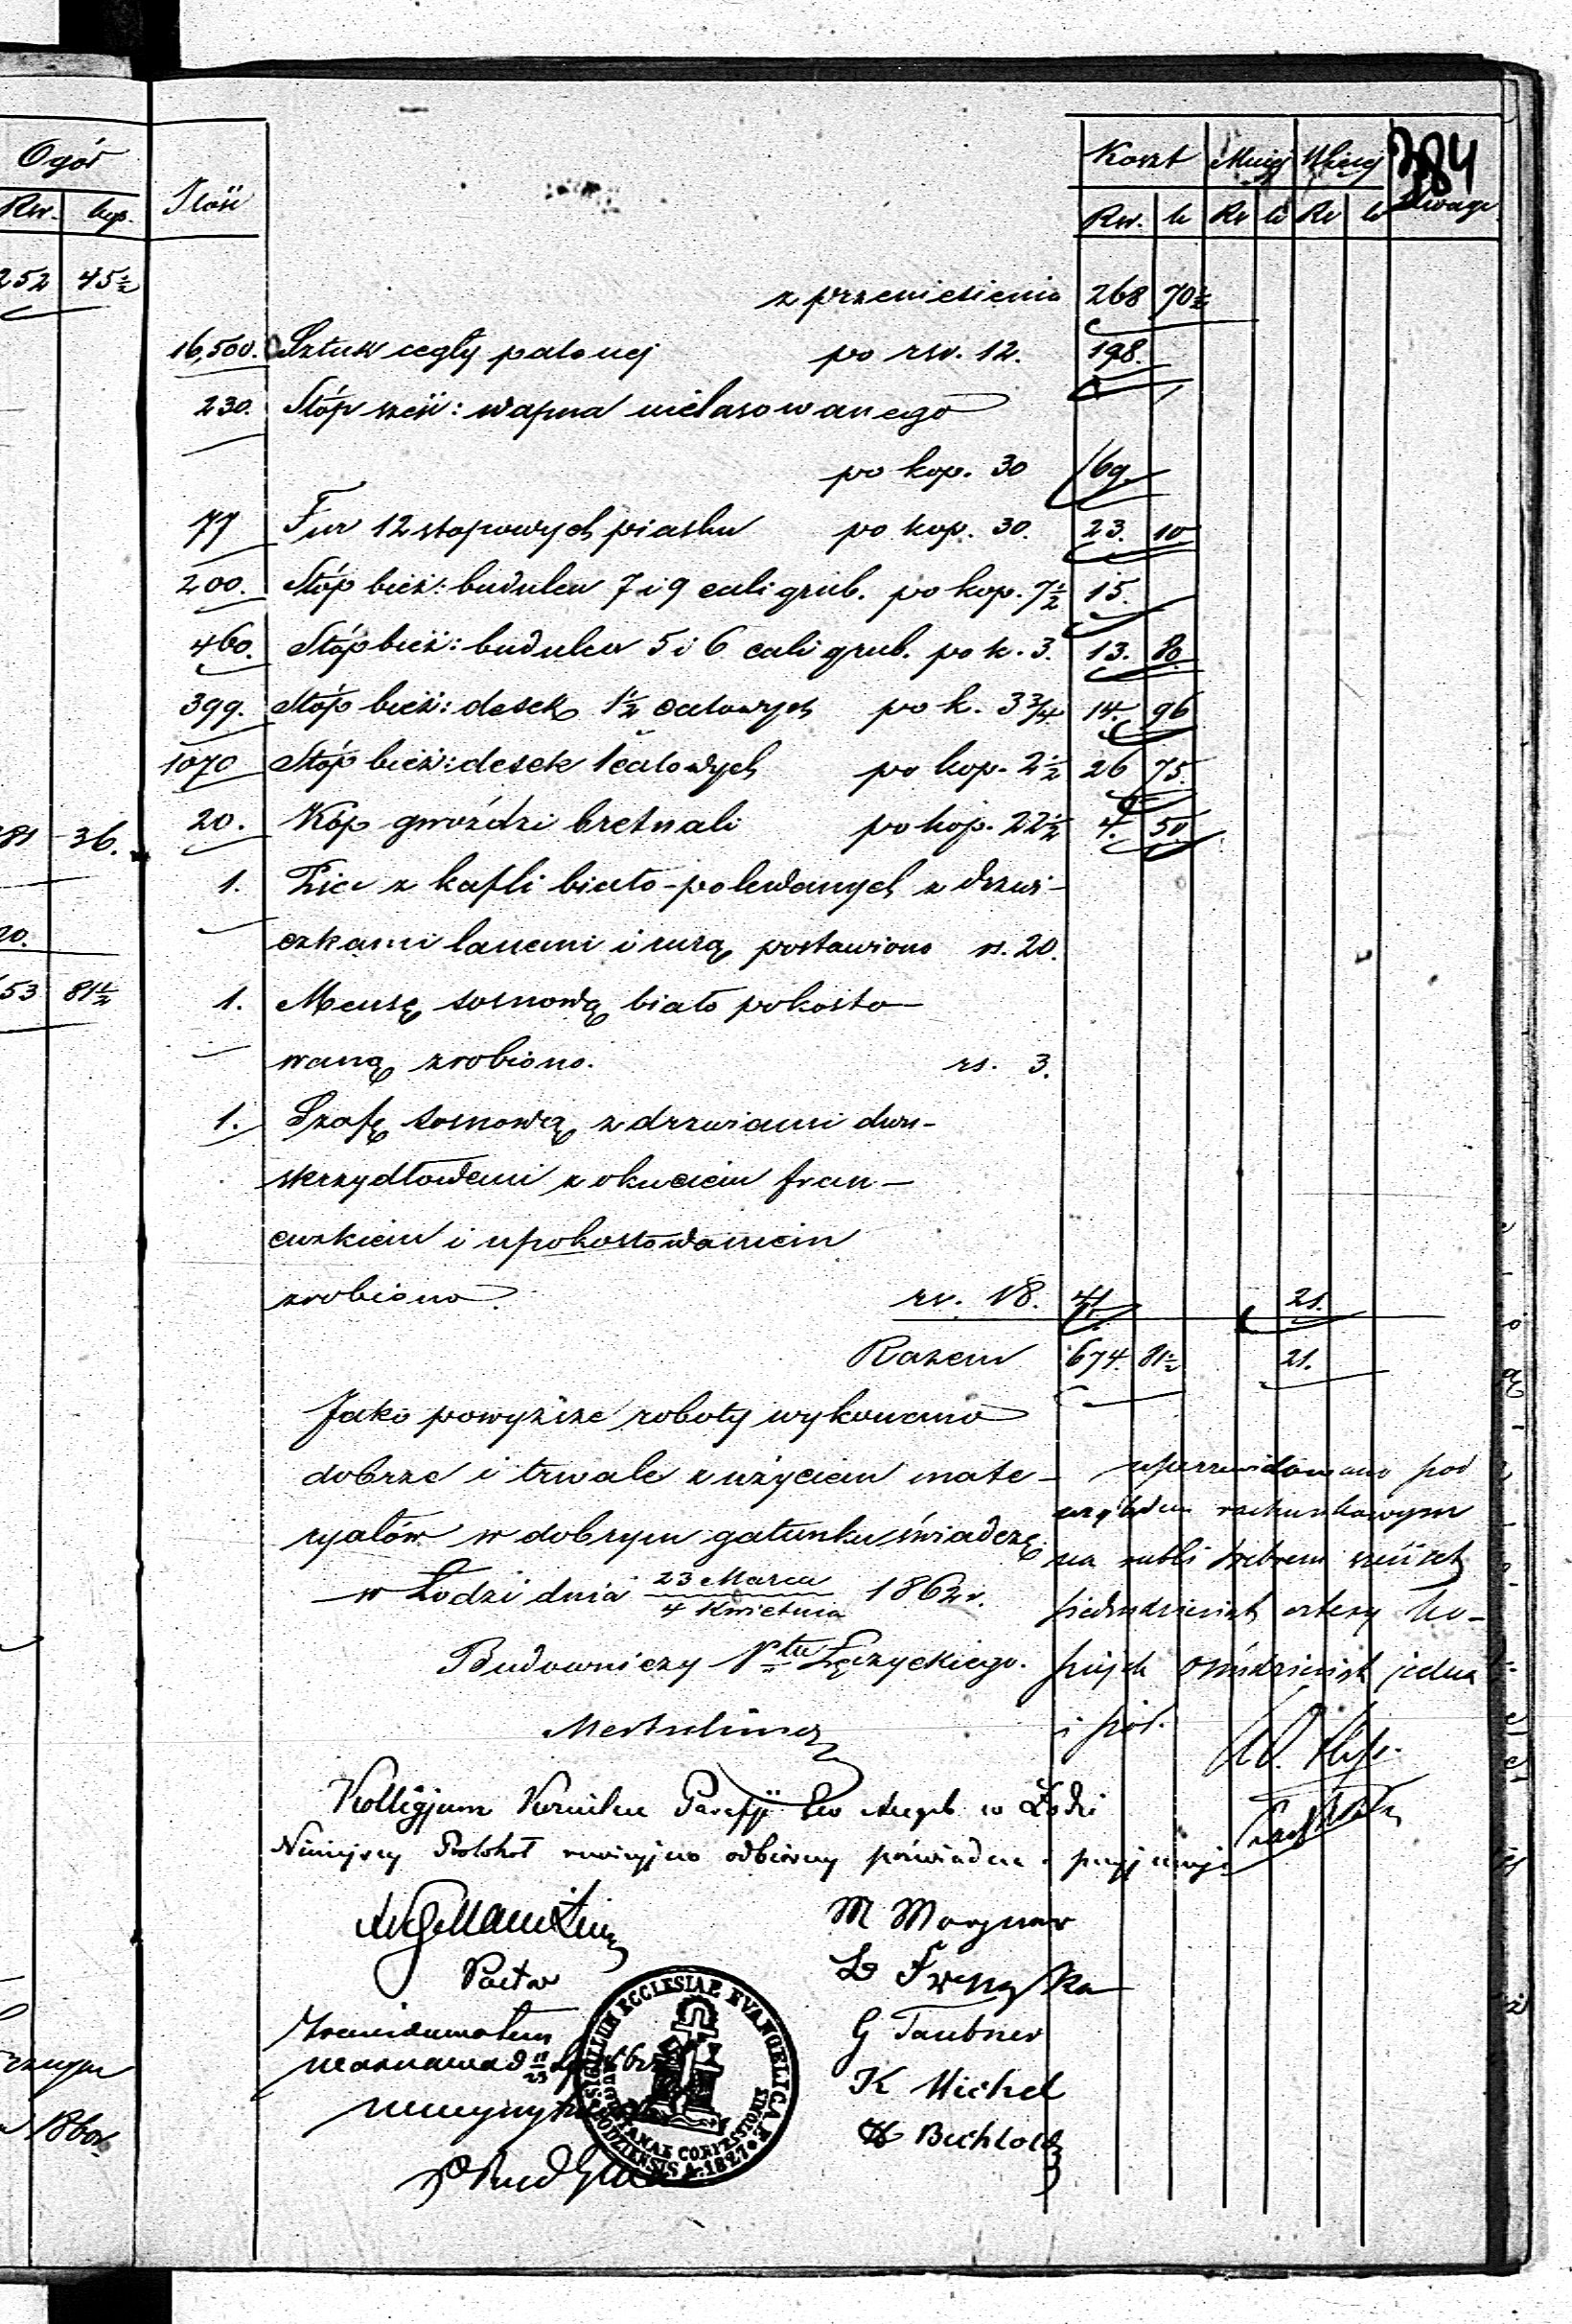 Ogół
Rsr. kop.
252 45½
36.
20.
53 81½
1860r.
384
Ilość Koszt Mniej Więcej Uwagi
Rsr. k Rs k Rs k
z przeniesienia 268 70½
16,500. Sztuk cegły palonej po rsr. 12. 198.
230. Stóp sześć: wapna nielasowanego
po kop. 30 69.
77 Fur 12 stopowych piasku po kop. 30. 23. 10
200. Stóp bież: budulcu 7 i 9 cali grub. po kop. 7½ 15.
460. Stóp bież: budulcu 5 i 6 cali grub. po k. 3. 13. 80.
399. Stóp bież: desek 1½ calowych po k. 3¾ 14. 96
1070 Stóp bież: desek 1 calowych po kop. 2½ 26 75.
20. Kóp gwoździ bretnali po kop. 22½ 4. 50
1. Piec z kafli biało-polewanych z drzwi-
czkami lanemi i rurą postawiono rs. 20.
1. Mensę sosnową biało pokosto-
waną zrobiono. rs. 3.
1. Szafę sosnową z drzwiami dwu-
skrzydłowemi z okuciem fran-
cuzkiem i upokostowaniem
zrobiono. rs. 18. 41. 21.
Razem 674. 81½ 21.
Jako powyższe roboty wykonano
dobrze i trwale z użyciem mate-
ryałów w dobrym gatunku świadczę
w Łodzi dnia 23 Marca / 4 Kwietnia 1862r.
Budowniczy Ptu Łęczyckiego.
pod
względem rachunkowym
na rubli srebrem sześćset
pięćdziesiąt cztery ko-
piejek ośmdziesiąt jedna
i pół.
Kollegjum Kościelne Parafji Ew Augsb w Łodzi
Niniejszy Protokół rewizyjno odbiorczy poświadcza i przyjmuje
Pastor
M Wagner
G Taubner
K Michel
SIGILLUM ECCLESIAE EVANGELICAE
AUGUSTANAE CONFESSIONIS
LODZIENSIS A. 1827